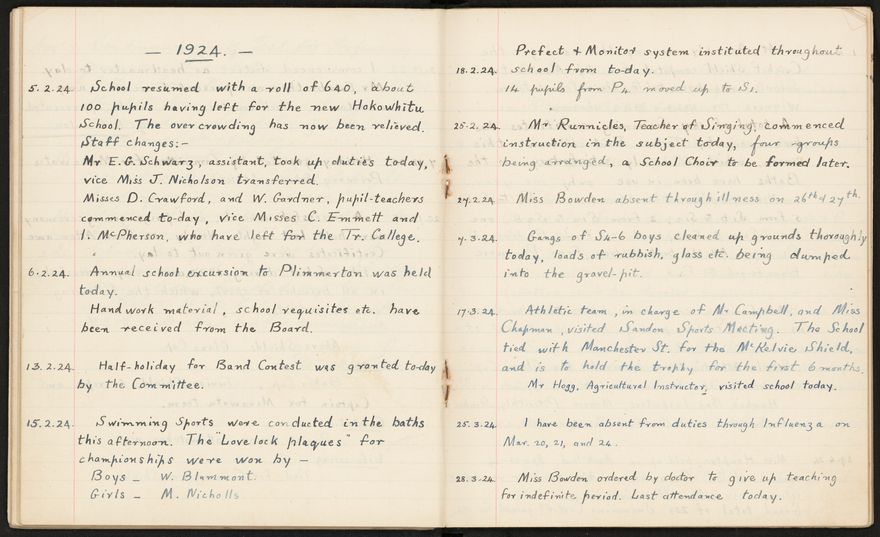 — 1924. —
5.2.24. School resumed with a roll of 640, about
100 pupils having left for the new Hokowhitu
School. The overcrowding has now been relieved.
Staff changes:-
Mr E.G. Schwarz, assistant, took up duties today,
vice Miss J. Nicholson transferred.
Misses D. Crawford, and W. Gardner, pupil-teachers
commenced to-day, vice Misses C. Emmett and
I. McPherson, who have left for the Tr. College.
6.2.24. Annual school excursion to Plimmerton was held
today.
Handwork material, school requisites etc. have
been received from the Board.
13.2.24. Half-holiday for Band Contest was granted to-day
by the Committee.
15.2.24. Swimming Sports were conducted in the baths
this afternoon. The "Lovelock plaques" for
championships were won by —
Boys — W. Blammont.
Girls — M. Nicholls
Prefect & Monitor system instituted throughout
18.2.24. school from to-day.
14 pupils from P4 moved up to S1.
25.2.24. Mr Runnicles, Teacher of Singing, commenced
instruction in the subject today, four groups
being arranged, a School Choir to be formed later.
27.2.24. Miss Bowden absent through illness on 26th & 27th.
7.3.24. Gangs of S4-6 boys cleaned up grounds thoroughly
today, loads of rubbish, glass etc. being dumped
into the gravel-pit.
17.3.24. Athletic team, in charge of Mr Campbell, and Miss
Chapman, visited Sandon Sports Meeting. The School
tied with Manchester St. for the McKelvie Shield,
and is to hold the trophy for the first 6 months.
Mr Hogg, Agricultural Instructor, visited school today.
25.3.24. I have been absent from duties through Influenza on
Mar. 20, 21, and 24.
28.3.24. Miss Bowden ordered by doctor to give up teaching
for indefinite period. Last attendance today.